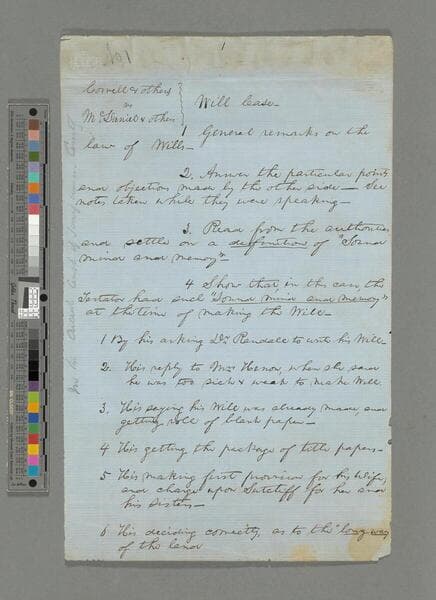 1
Cowell & others
vs
McDaniel & others
Will case—
1 General remarks on the
law of Wills—
2. Answer the particular points
and objections made by the other side — See
notes taken while they were speaking—
3. Read from the authorities
and settle on a definition of "Sound
mind and memory"—
4 Show that, in this case, the
Testator had such "Sound mind and memory"
at the time of making the Will—
1 By his asking Dr. Randale to write his Will
2. His reply to Mrs. , when she said
he was too sick & weak to make Will.
3. His saying his Will was already made, and
getting roll of blank paper—
4 His getting the package of title papers—
5 His making first provision for his Wife,
and charge upon Sutcliff for her and
his sisters—
6 His deciding correctly, as to the "long way
of the land